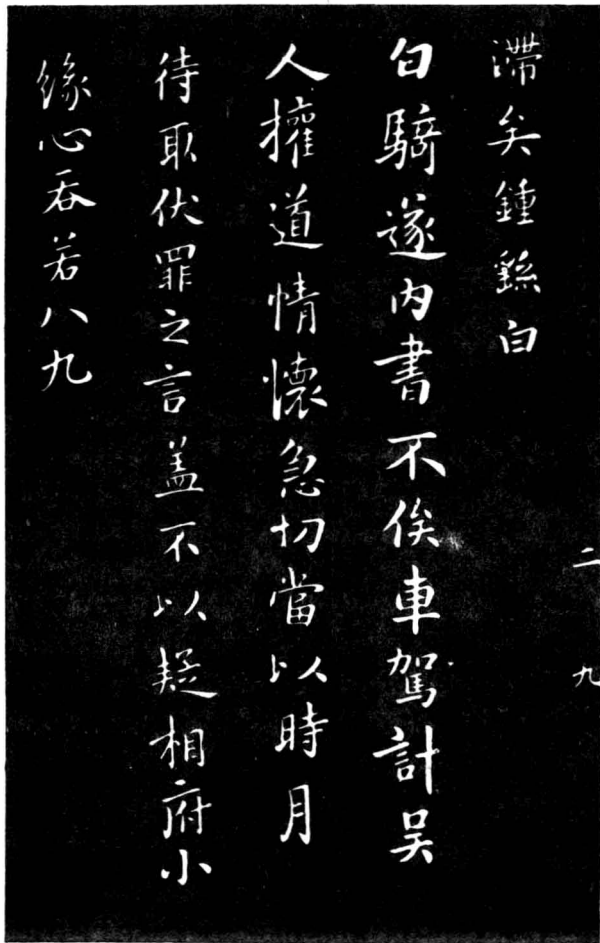 滞矣鍾繇白
白騎遂内書不俟車駕計吴
人擁道情懷急切當以時月
待取伏罪之言盖不以疑相府小
緣心吞若八九
二九